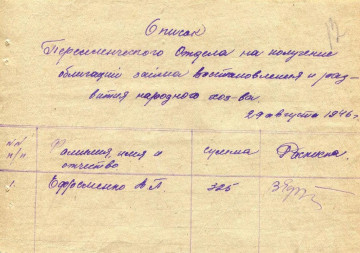 Список
Пересменческого Отдела на получение
облигаций займа востановления и раз-
вития народного хоз-ва.
29 августа 1946 г.
№№ п/п Фамилия, имя и отчество сумма Роспись
1. Ефременко А.П. 325